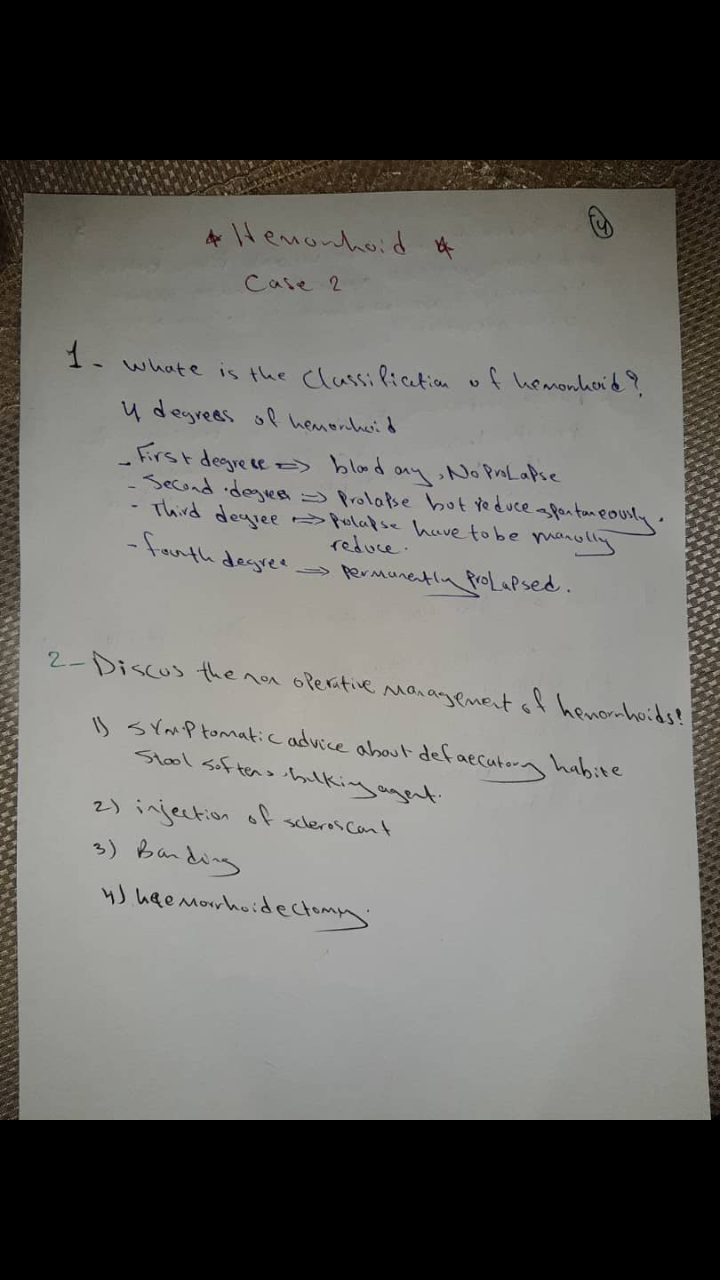 * Hemorrhoid *
4
Case 2
1- Whate is the Classification of hemorrhoid?
4 degrees of hemorrhoid
- First degree => blood only, No Prolapse
- Second degree => Prolapse but reduce spontaneously.
- Third degree => Prolapse have to be manully
reduce.
- fourth degree => permanently prolapsed.
2- Discus the non operative management of hemorrhoids?
1) symptomatic advice about defaecatory habite
stool softens, bulking agent.
2) injection of scleroscant
3) Banding
4) haemorrhoidectomy.